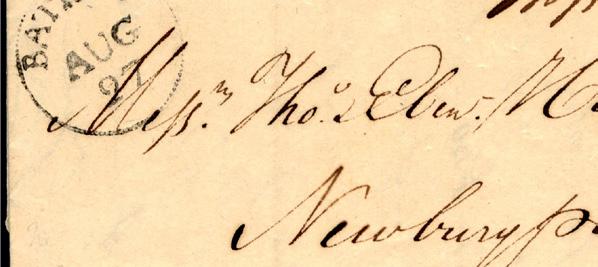 BAT
AUG
27
Messrs. Thos. & Eben. M
Newburyp